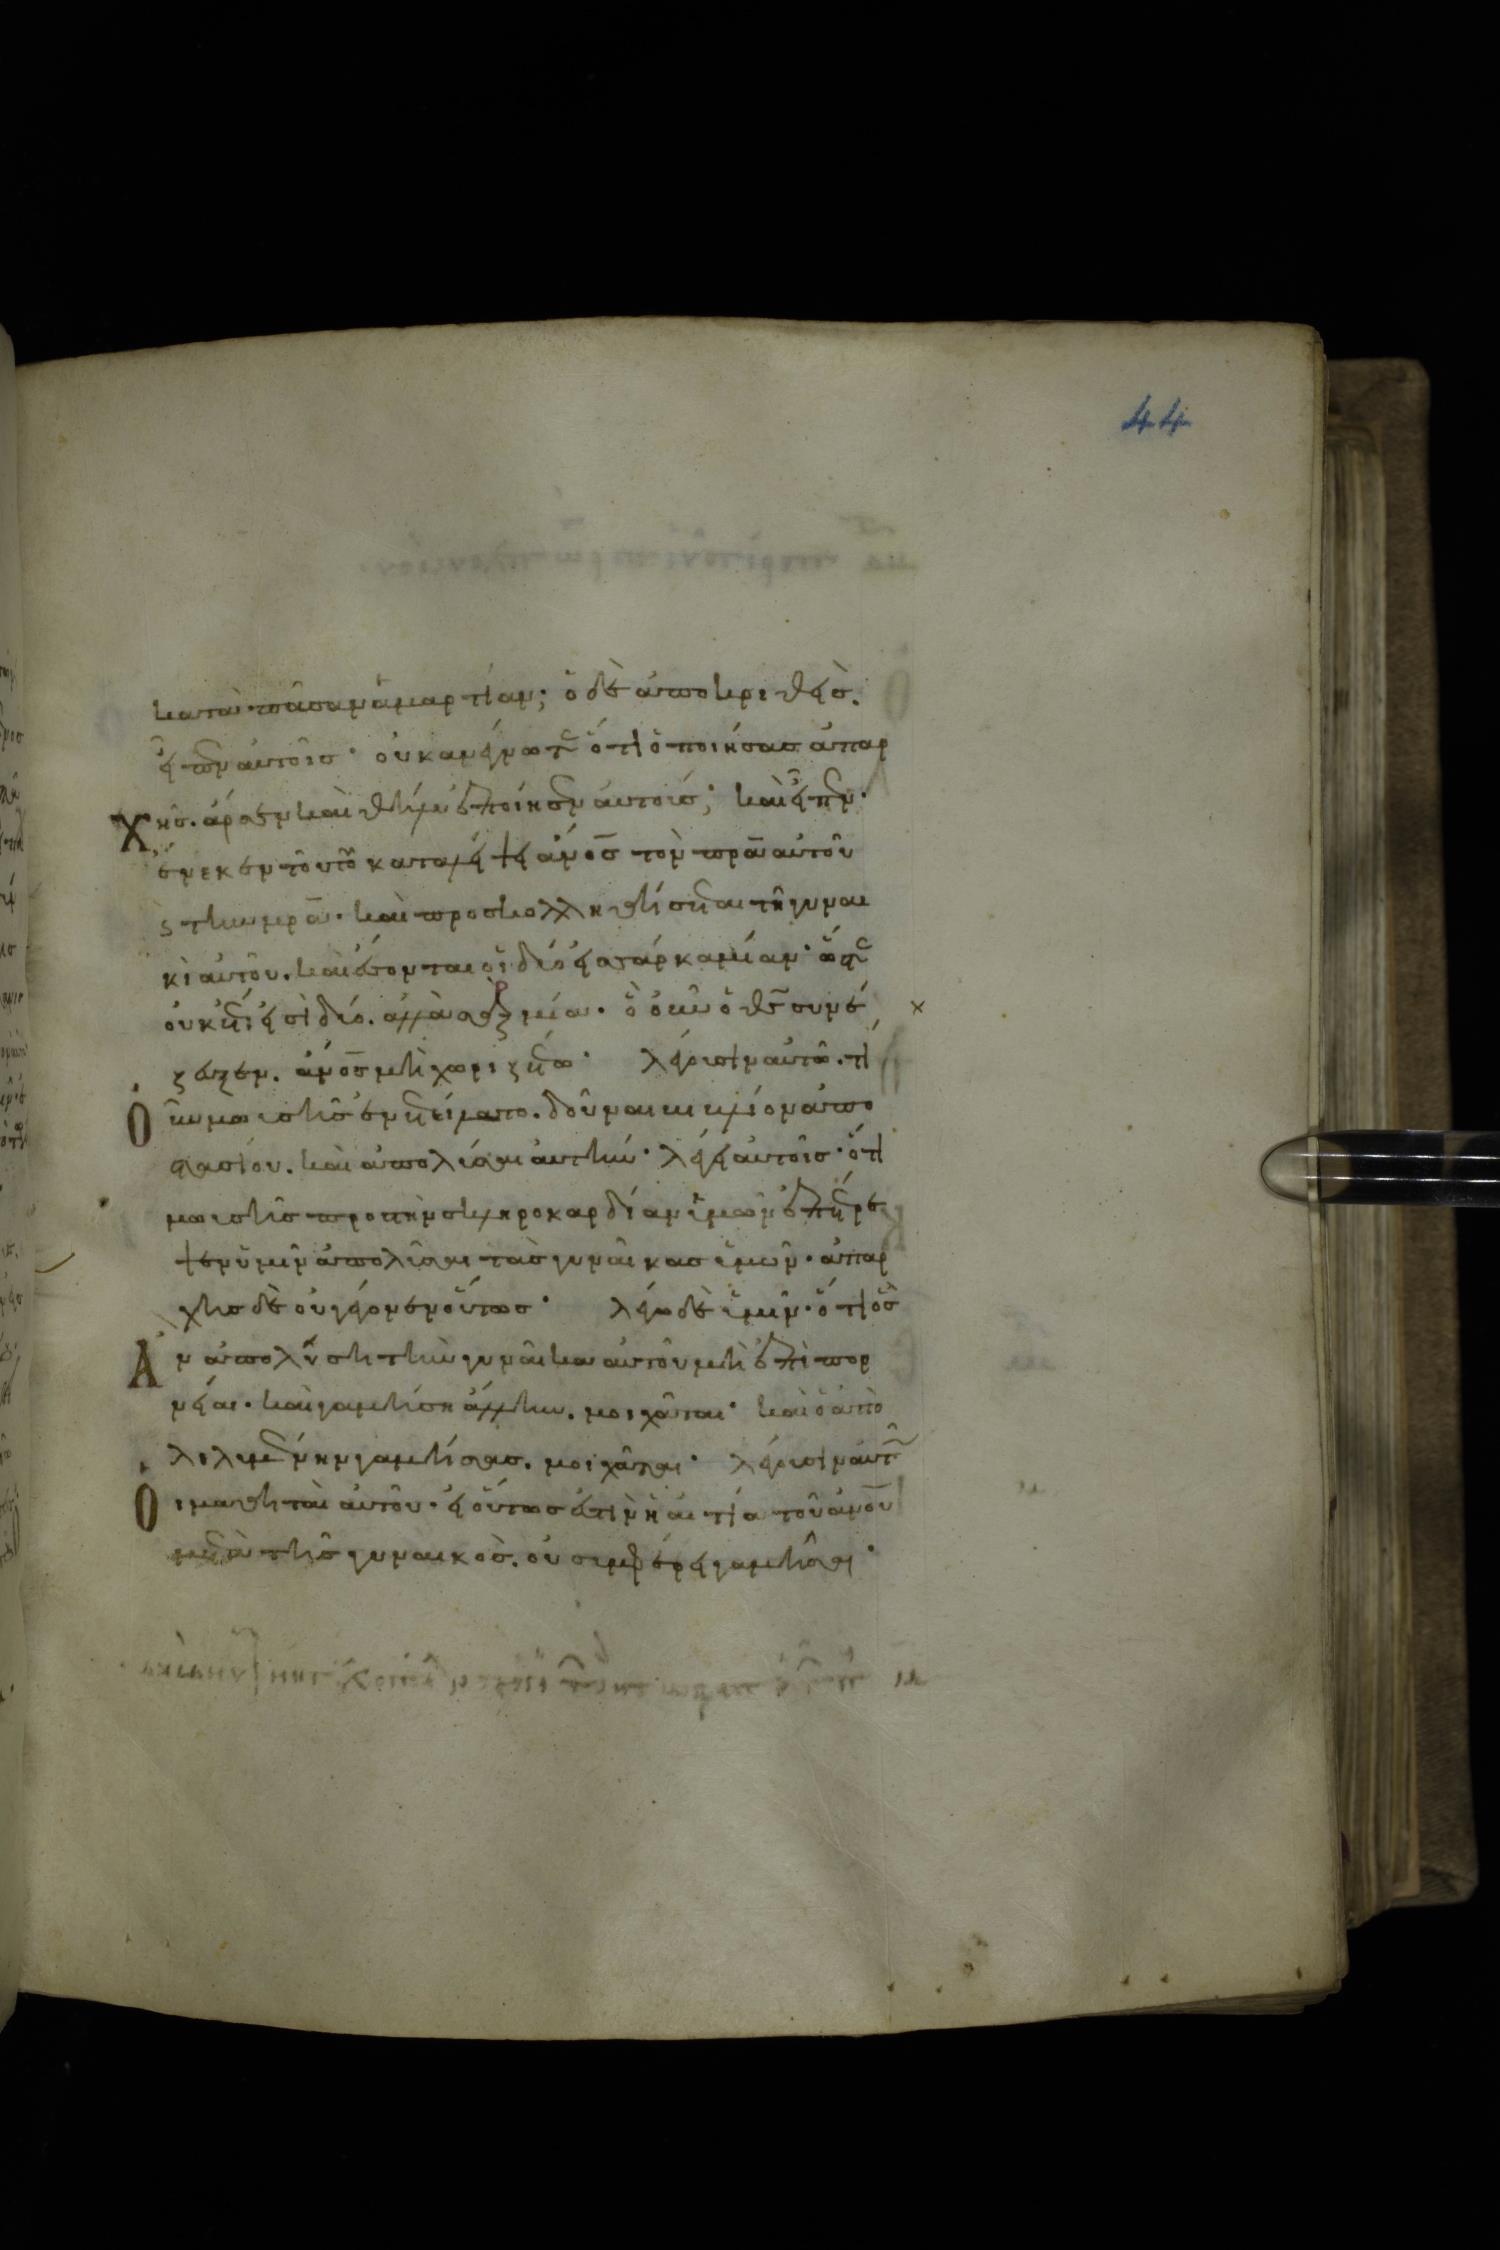 44
κατὰ πᾶσαν ἁμαρτίαν; ὁ δὲ ἀποκριθεὶς.
εἶπεν αὐτοῖς· οὐκ ἀνέγνωτε ὅτι ὁ ποιήσας ἀπαρ
Χῆς. ἄρσεν καὶ θῆλυ ἐποίησεν αὐτοὺς; καὶ εἶπεν·
ἕνεκεν τούτου καταλείψει ἄνος τὸν πρα αὐτοῦ
ϛ τὴν μρα. καὶ προσκολληθήσεται τῇ γυναι
κὶ αὐτοῦ. καὶ ἔσονται οἱ δύο εἰς σάρκα μίαν· ὥστε
οὐκέτι εἰσὶ δύο. ἀλλὰ σὰρξ μία. ὃ οὖν ὁ θς συνέ
ζευξεν. ἄνος μὴ χωριζέτω· λέγουσιν αὐτῷ. τί
Ὁ ὖν μωυσῆς ἐνετείλατο. δοῦναι βιβλίον ἀπο
στασίου. καὶ ἀπολύσαι αὐτήν· λέγει αὐτοῖς· ὅτι
μωυσῆς πρὸς τὴν σκληροκαρδίαν ὑμῶν ἐπέτρε
ψεν ὑμῖν ἀπολῦσαι τὰς γυναῖκας ὑμῶν. ἀπαρ
χῆς δὲ οὐ γέγονεν οὕτως· λέγω δὲ ὑμῖν. ὅτι ὃς
Ἀ ν ἀπολύσῃ τὴν γυναῖκα αὐτοῦ μὴ ἐπὶ πορ
νείαι. καὶ γαμήσῃ ἄλλην. μοιχᾶται· καὶ ὁ ἀπο
λελυμένην γαμήσας. μοιχᾶται· λέγουσιν αὐτῷ
Ὁ ι μαθηταὶ αὐτοῦ. εἰ οὕτως ἐστὶν ἡ αἰτία τοῦ ἀνου
μετὰ τῆς γυναικὸς. οὐ συμφέρει γαμῆσαι·